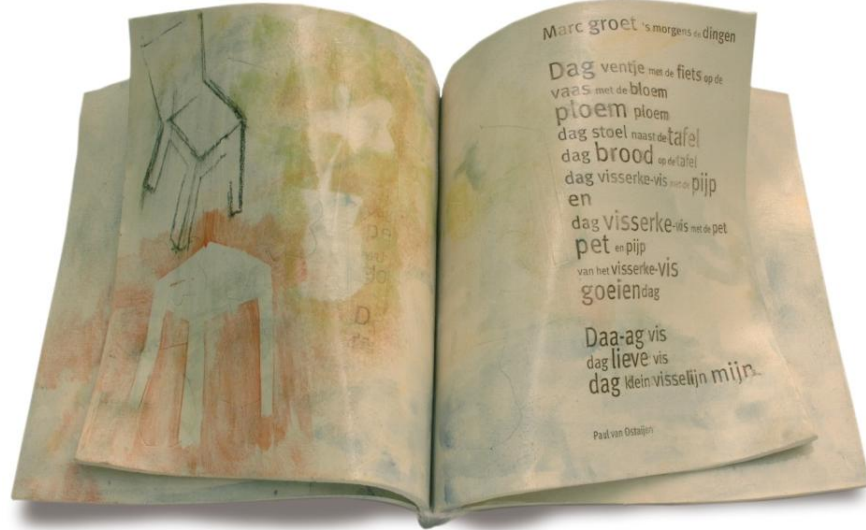 Marc groet 's morgens de dingen
Dag ventje met de fiets op de
vaas met de bloem
ploem ploem
dag stoel naast de tafel
dag brood op de tafel
dag visserke-vis met de pijp
en
dag visserke-vis met de pet
pet en pijp
van het visserke-vis
goeiendag
Daa-ag vis
dag lieve vis
dag klein visselijn mijn
Paul van Ostaijen